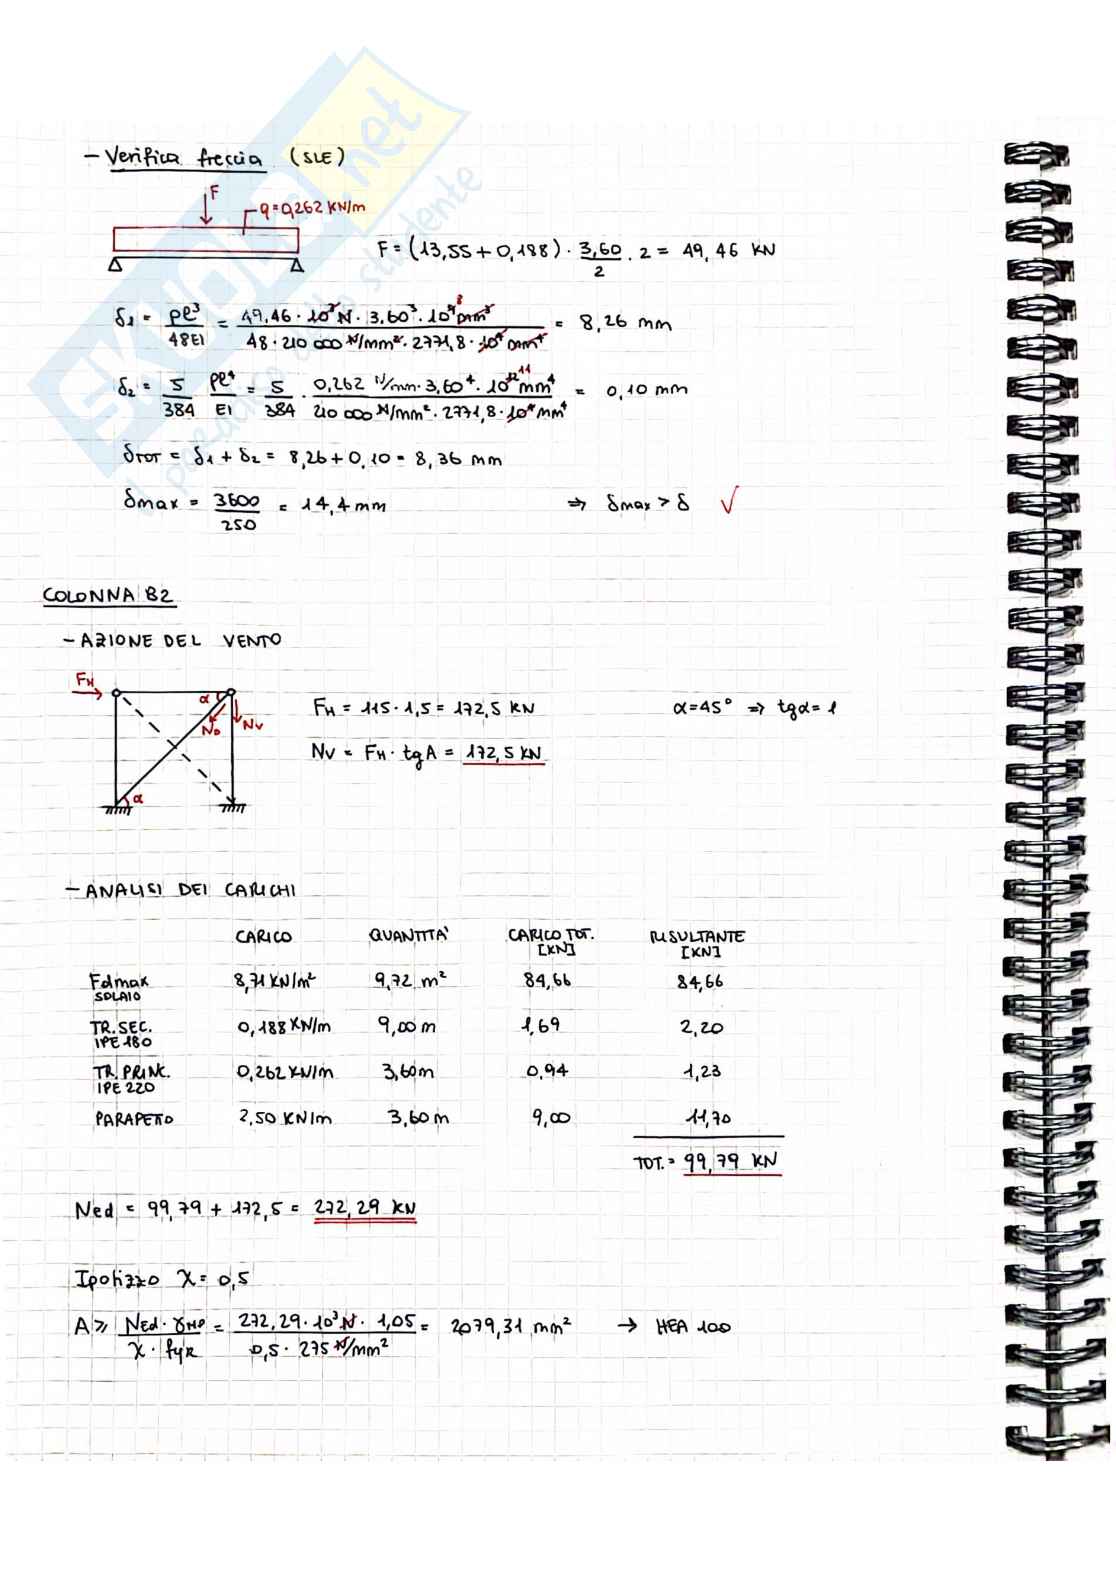 - Verifica freccia (SLE)
F
q=0,262 KN/m
F = (13,55 + 0,188) · 3,60/2 · 2 = 49,46 KN
δ1 = Pl³/48EI = 49,46 · 10³ N · 3,60³ · 10⁹ mm³ / 48 · 210 000 N/mm² · 2771,8 · 10⁴ mm⁴ = 8,26 mm
δ2 = 5/384 pl⁴/EI = 5/384 · 0,262 N/mm · 3,60⁴ · 10¹² mm⁴ / 210 000 N/mm² · 2771,8 · 10⁴ mm⁴ = 0,10 mm
δTOT = δ1 + δ2 = 8,26 + 0,10 = 8,36 mm
δmax = 3600/250 = 14,4 mm ⇒ δmax > δ ✓
COLONNA B2
- AZIONE DEL VENTO
FH
α
ND
NV
α
FH = 115 · 1,5 = 172,5 KN
α=45° ⇒ tgα= 1
NV = FH · tgA = 172,5 KN
- ANALISI DEI CARICHI
CARICO QUANTITA' CARICO TOT. [KN] RISULTANTE [KN]
Fdmax SOLAIO 8,71 KN/m² 9,72 m² 84,66 84,66
TR. SEC. IPE 180 0,188 KN/m 9,00 m 1,69 2,20
TR. PRINC. IPE 220 0,262 KN/m 3,60m 0,94 1,23
PARAPETTO 2,50 KN/m 3,60 m 9,00 11,70
TOT. = 99,79 KN
Ned = 99,79 + 172,5 = 272,29 KN
Ipotizzo χ = 0,5
A ≥ NEd · γM0 / χ · fyk = 272,29 · 10³ N · 1,05 / 0,5 · 275 N/mm² = 2079,31 mm² → HEA 100
SKUOLA.net